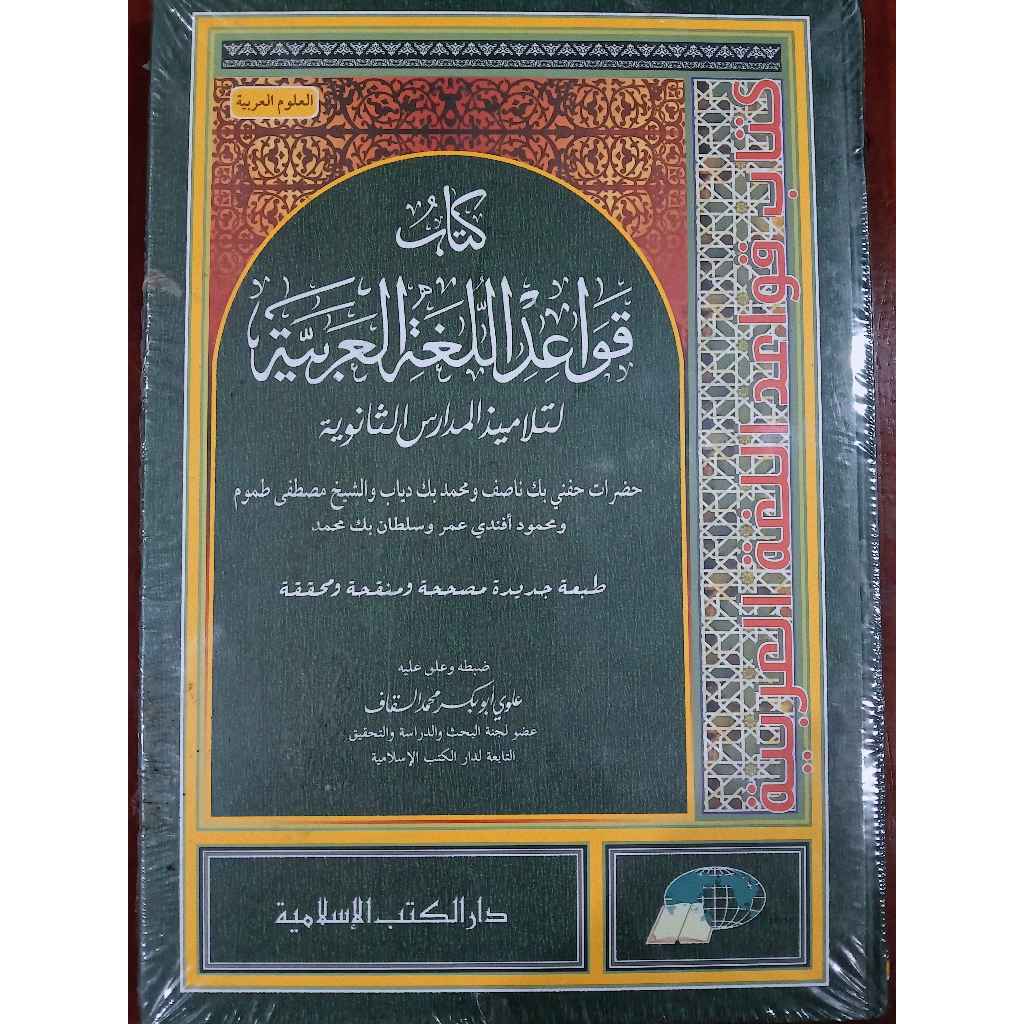 العلوم العربية
كتابُ
قَوَاعِدْ اللُّغَةِ العَرَبيَّة
لتلاميذ المدارس الثانوية
حضرات حفني بك ناصف ومحمد بك دياب والشيخ مصطفى طموم
ومحمود أفندي عمر وسلطان بك محمد
طبعة جديدة مصححة ومنقحة ومحققة
ضبطه وعلق عليه
علوي ابو بكر محمد السقاف
عضو لجنة البحث والدراسة والتحقيق
التابعة لدار الكتب الإسلامية
كتاب قواعد اللغة العربية
دار الكتب الإسلامية